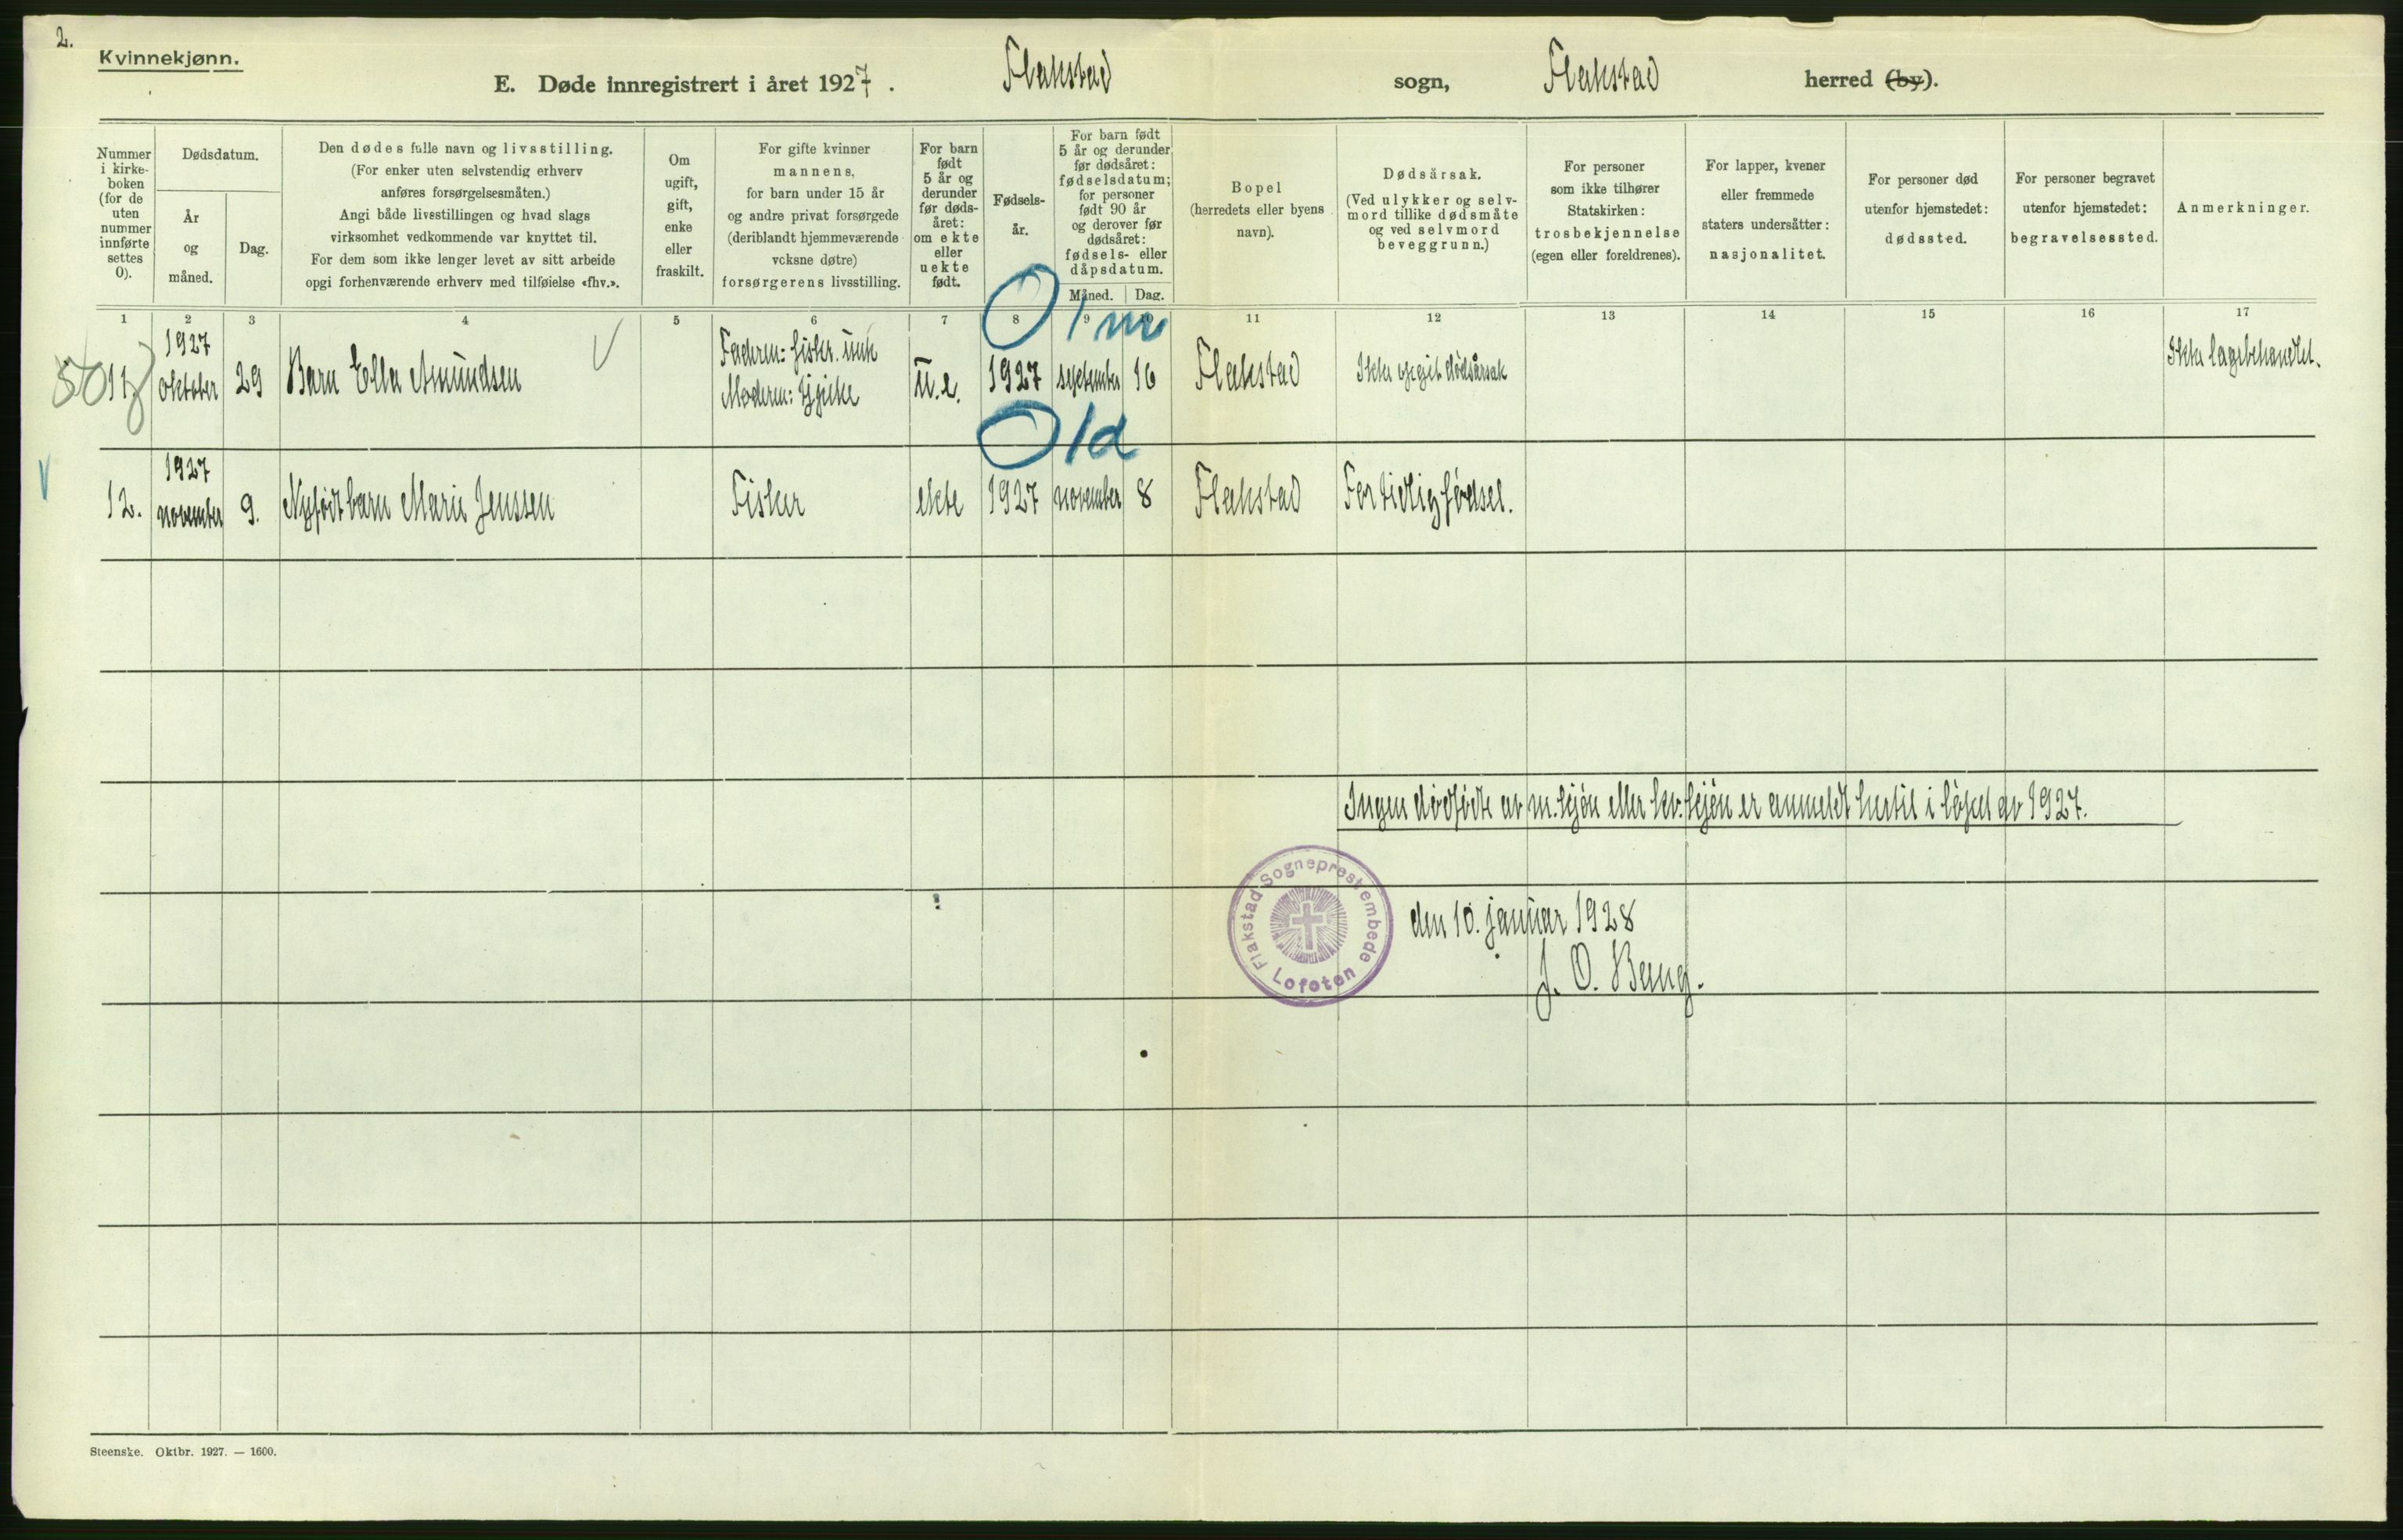 2.
Kvinnekjønn.
E. Døde innregistrert i året 1927. Flakstad sogn, Flakstad herred (by).
Nummer
i kirke-
boken
(for de
uten
nummer
innførte
settes
0).
Dødsdatum.
År
og
måned.
Dag.
Den dødes fulle navn og livsstilling.
(For enker uten selvstendig erhverv
anføres forsørgelsesmåten.)
Angi både livsstillingen og hvad slags
virksomhet vedkommende var knyttet til.
For dem som ikke lenger levet av sitt arbeide
opgi forhenværende erhverv med tilføielse «fhv.».
Om
ugift,
gift,
enke
eller
fraskilt.
For gifte kvinner
mannens,
for barn under 15 år
og andre privat forsørgede
(deriblandt hjemmeværende
vcksne døtre)
forsørgerens livsstilling.
For barn
født
5 år og
derunder
før døds-
året:
om ekte
eller
uekte
født.
Fødsels-
år.
For barn født
5 år og derunder
før dødsåret:
fødselsdatum;
for personer
født 90 år
og derover før
dødsåret:
fødsels- eller
dåpsdatum.
Måned. Dag.
Bopel
(herredets eller byens
navn).
Dødsårsak.
(Ved ulykker og selv-
mord tillike dødsmåte
og ved selvmord
beveggrunn.)
For personer
som ikke tilhører
Statskirken:
trosbekjennelse
(egen eller foreldrenes).
For lapper, kvener
eller fremmede
staters undersåtter:
nasjonalitet.
For personer død
utenfor hjemstedet:
dødssted.
For personer begravet
utenfor hjemstedet:
begravelsessted.
Anmerkninger.
1 2 3 4 5 6 7 8 9 11 12 13 14 15 16 17
0 1 m
11 1927 oktober 29 Barn Ella Amundsen Faderen: fisker. unk
Moderen: u.e. 1927 september 16 Flakstad Ikke opgit dødsårsak Ikke lægebehandlet.
0 1d
12. 1927 november 9. Nyfødt barn Marie Jenssen Fisker ekte 1927 november 8 Flakstad For tidlig fødsel.
Ingen dødfødte av m.kjøn eller kv.kjøn er anmeldt hertil i løpet av 1927.
Flakstad Sogneprestembede
Lofoten
den 10. januar 1928
J. O. Bang.
Steenske. Oktbr. 1927. — 1600.